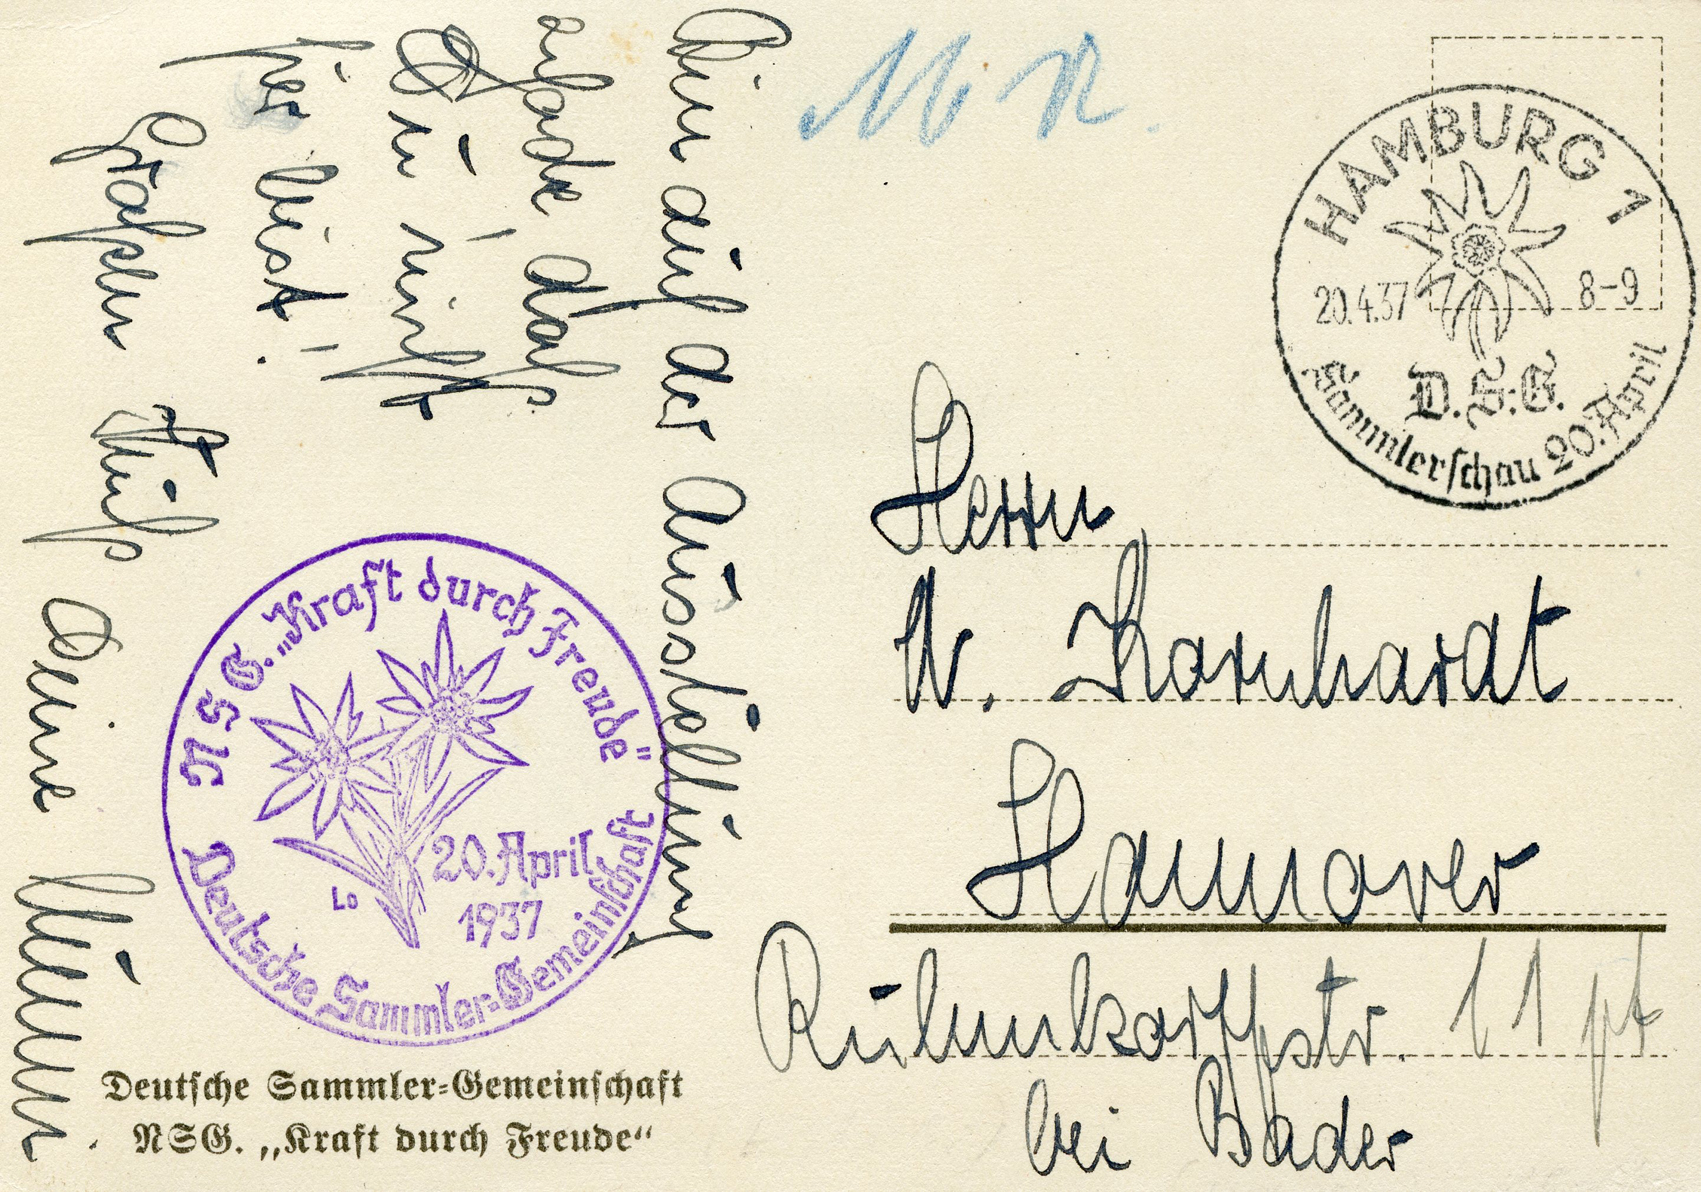 Bin auf der Ausstellung
schade, daß
Du nicht
hier bist.
Großen Kuß Deine
M. R.
HAMBURG 1
20.4.37 8-9
D.S.G.
Sammlerschau 20. April
Herrn
W. Kornhardt
Hannover
Rühmkorffstr. 11 pt
bei Bader
NSG. „Kraft durch Freude"
20. April
1937
Lo
Deutsche Sammler-Gemeinschaft
Deutsche Sammler-Gemeinschaft
NSG. „Kraft durch Freude“